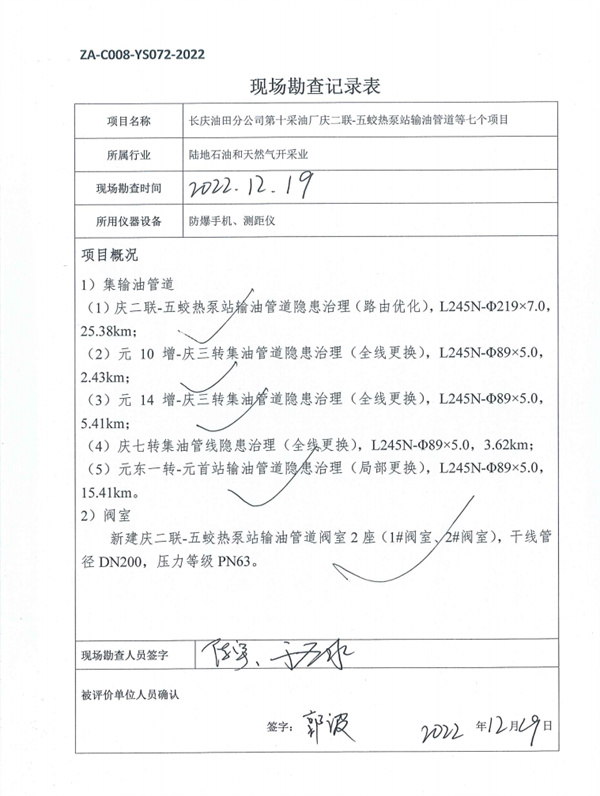 ZA-C008-YS072-2022
现场勘查记录表
项目名称 长庆油田分公司第十采油厂庆二联-五蛟热泵站输油管道等七个项目
所属行业 陆地石油和天然气开采业
现场勘查时间 2022.12.19
所用仪器设备 防爆手机、测距仪
项目概况
1）集输油管道
（1）庆二联-五蛟热泵站输油管道隐患治理（路由优化），L245N-Φ219×7.0，
25.38km；
（2）元 10 增-庆三转集油管道隐患治理（全线更换），L245N-Φ89×5.0，
2.43km；
（3）元 14 增-庆三转集油管道隐患治理（全线更换），L245N-Φ89×5.0，
5.41km；
（4）庆七转集油管线隐患治理（全线更换），L245N-Φ89×5.0，3.62km；
（5）元东一转-元首站输油管道隐患治理（局部更换），L245N-Φ89×5.0，
15.41km。
2）阀室
新建庆二联-五蛟热泵站输油管道阀室 2 座（1#阀室、2#阀室），干线管
径 DN200，压力等级 PN63。
现场勘查人员签字
被评价单位人员确认
签字：郭波 2022 年12月19日